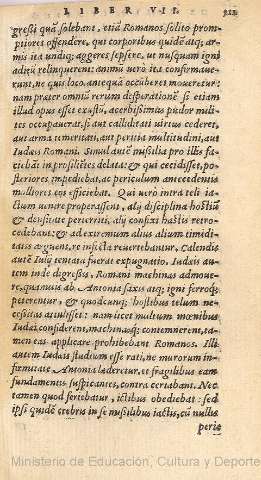 LIBER VII.
gressi quã solebant, etiã Romanos solito prom-
ptiores offendere, qui corporibus quidẽ atq; ar-
mis ita undiq; aggeres sepsere, ut nusquam igni
aditũ relinquerent: animũ uero ita confirmaue-
runt, ne quis loco antequã occũberet moueretur:
nam præter omniũ rerum disperationẽ si etiam
illud opus esset exustũ, acerbissimus pudor mili-
tes occupauerat, si aut calliditati uirtus cederet,
aut arma temeritati, aut peritia multitudini, aut
Iudæis Romani. Simul autẽ missilia pro illis fa-
ciebãt in prosilẽtes delata: & qui cecidisset, po-
steriores impediebat, ac periculum antecedentis
molliores eos efficiebat. Qui uerò intra teli ia-
ctum uentre properassent, alij disciplina hostiũ
& densitate perterriti, alij confixi hastis retro-
cedebant: & ad extremum alius alium timidi-
tatis arguens, re infecta reuertebantur, Calendis
autẽ Iulij tentata fuerat expugnatio. Iudæis au-
tem inde digressis, Romani machinas admoue-
re, quamuis ab Antonia saxis atq; igni ferroq;
peterentur, & quodcunq; hostibus telum ne-
cessitas attulisset: nam licet multum mœnibus
Iudæi confiderent, machinasq; contemnerent, ta-
men eas applicare prohibebant Romanos. Illi
autem Iudæis studium esse rati, ne murorum in-
firmitate Antonia læderetur, et fragilibus eam
fundamentis suspicantes, contra certabant. Nec
tamen quod feriebatur, ictibus obediebat: sed
ipsi quidẽ crebris in se missilibus iactis, cũ nullis
peric
Ministerio de Educación, Cultura y Deporte